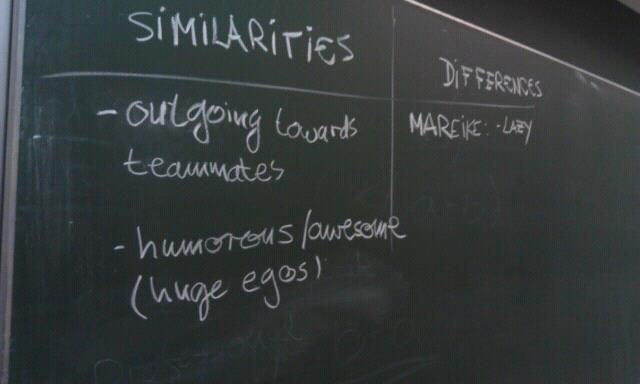 SIMILARITIES
- outgoing towards
teammates
- humorous/awesome
(huge egos)
DIFFERENCES
MAREIKE: - LAZY